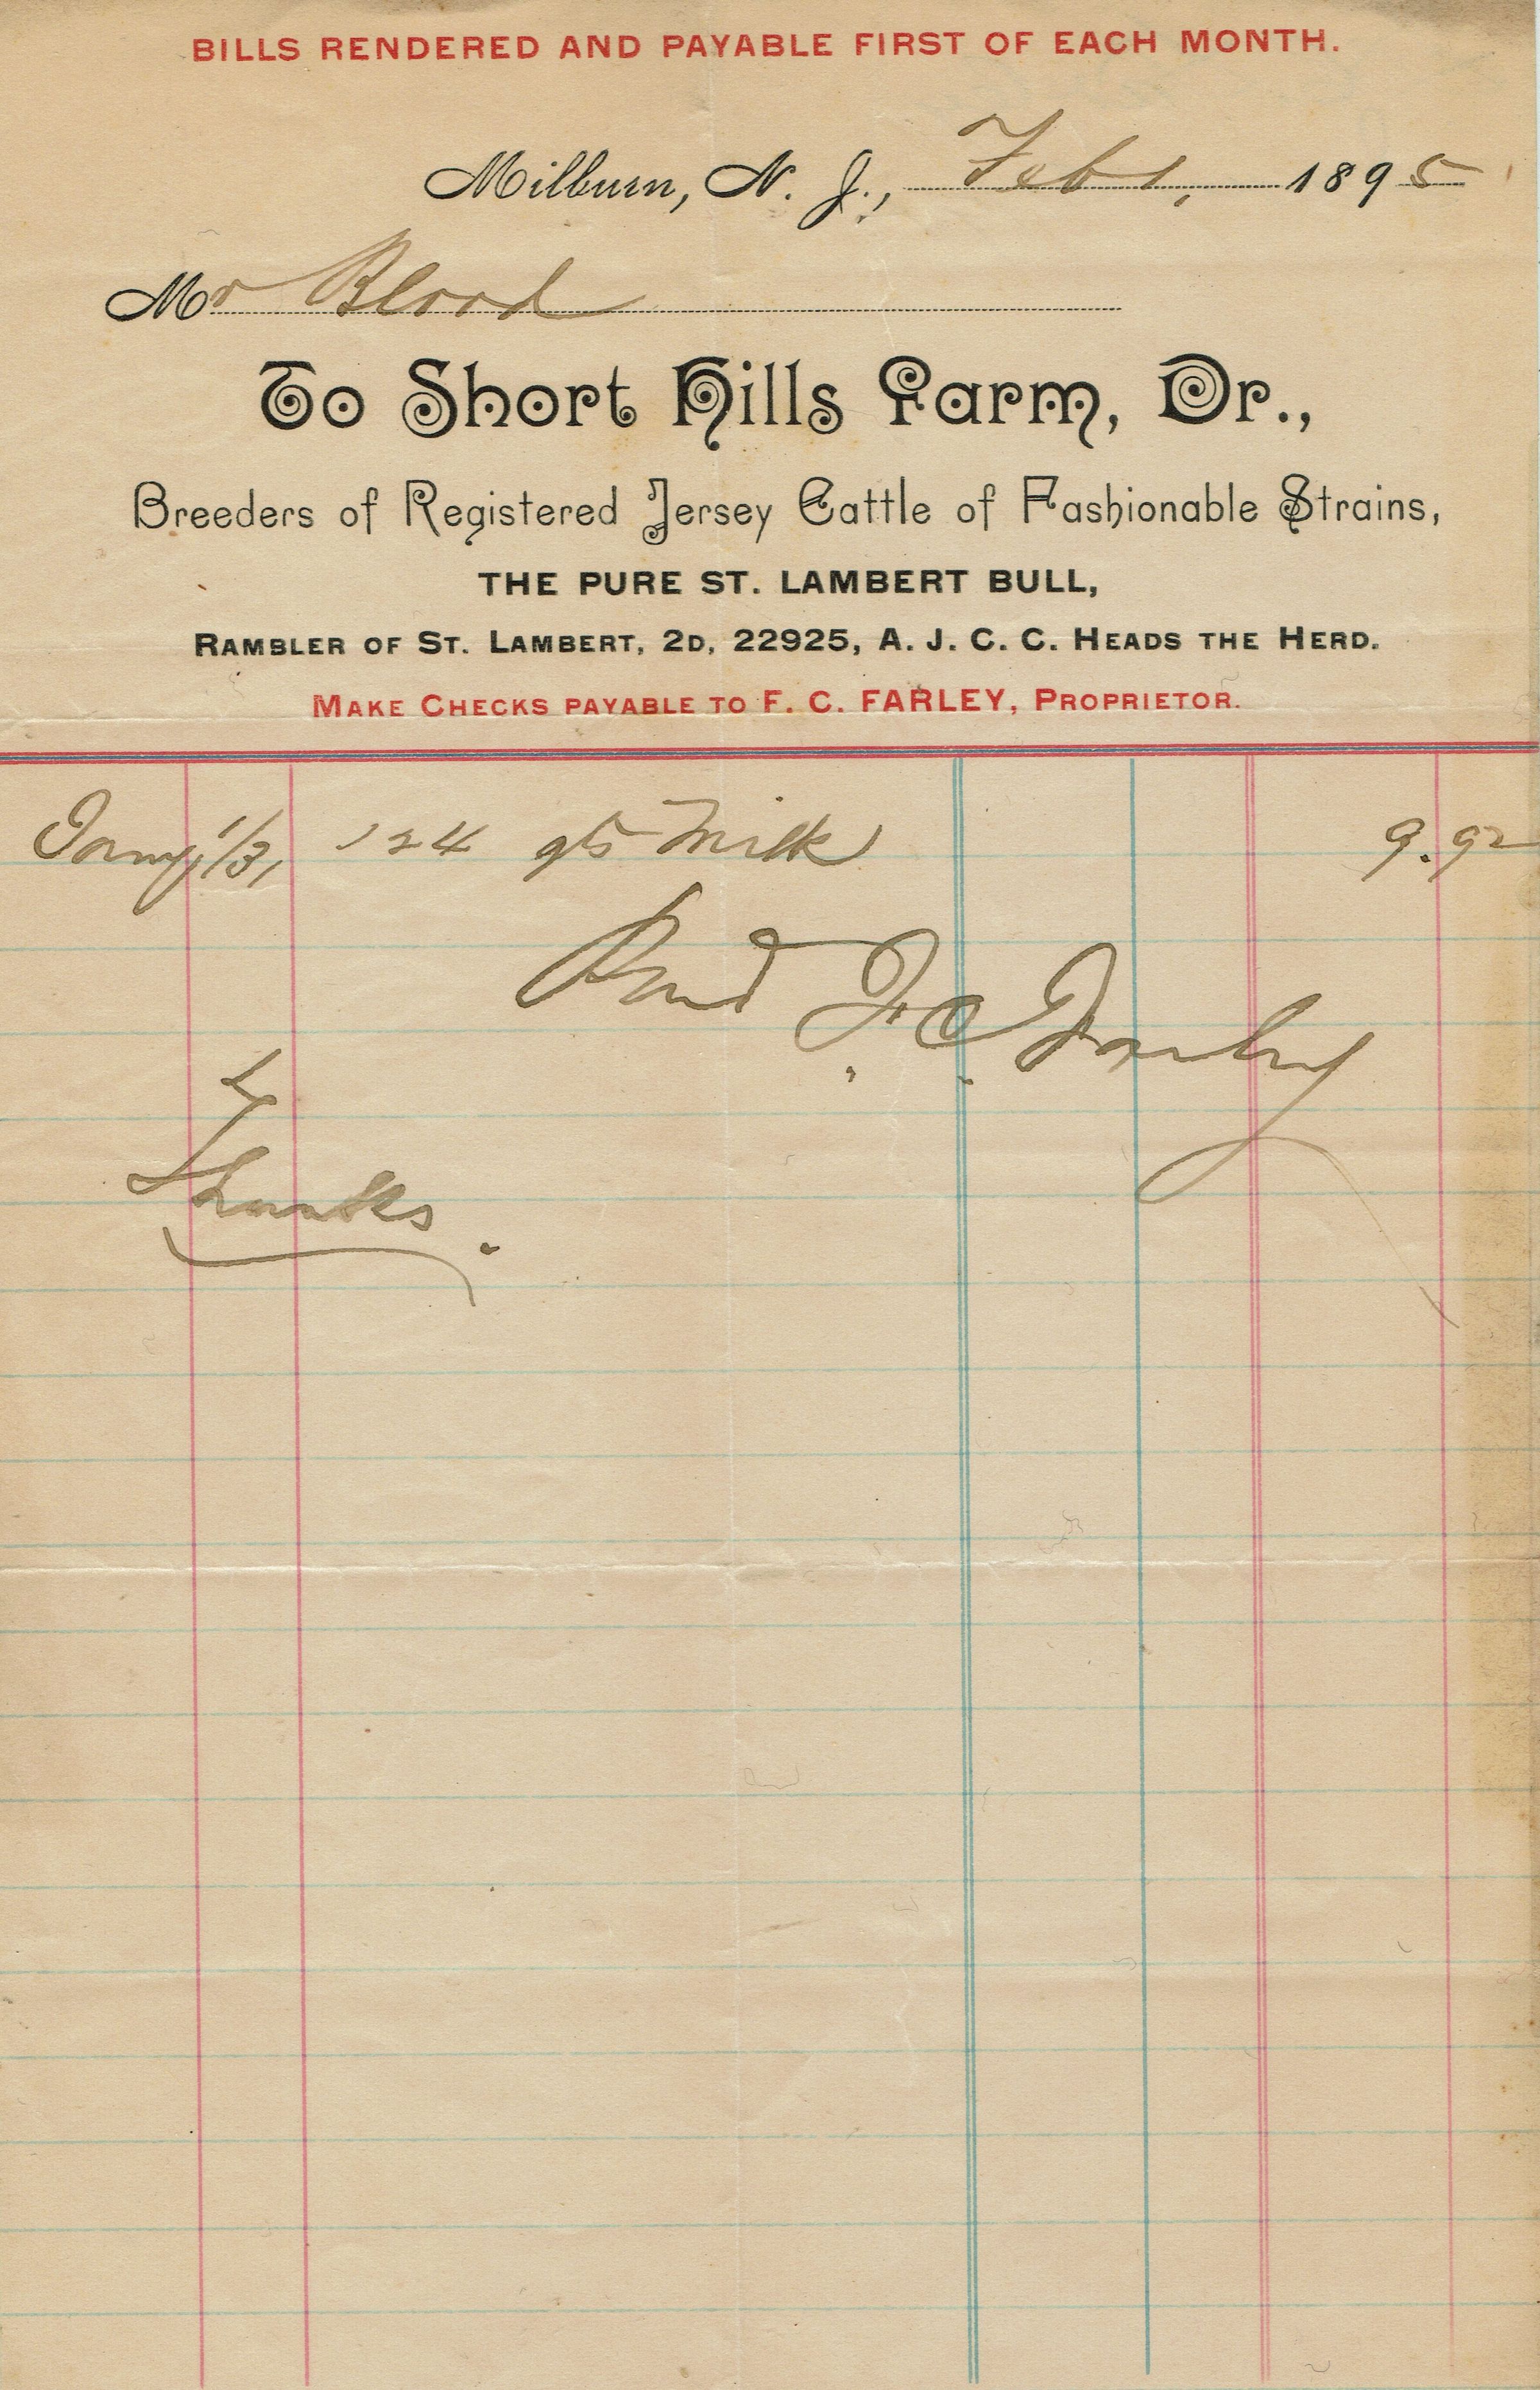 BILLS RENDERED AND PAYABLE FIRST OF EACH MONTH.
Milburn, N. J., Feb 1, 1895
Mr Blood
To Short Hills Farm, Dr.,
Breeders of Registered Jersey Cattle of Fashionable Strains,
THE PURE ST. LAMBERT BULL,
RAMBLER OF ST. LAMBERT, 2D, 22925, A. J. C. C. HEADS THE HERD.
MAKE CHECKS PAYABLE TO F. C. FARLEY, PROPRIETOR.
Jany 1/31 124 qts Milk 9.92
Paid F. C. Farley
Thanks.